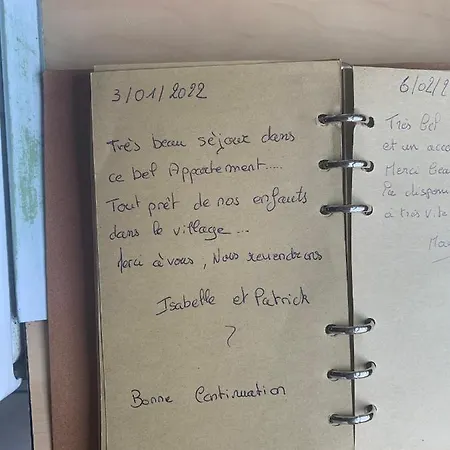 3/01/2022
Très beau séjour dans
ce bel Appartement.....
Tout prêt de nos enfants
dans le village...
Merci à vous, Nous reviendrons
Isabelle et Patrick
Bonne Continuation
6/02/2
Très bel
et un acc
Merci bea
la dispon
à très vite
Ma